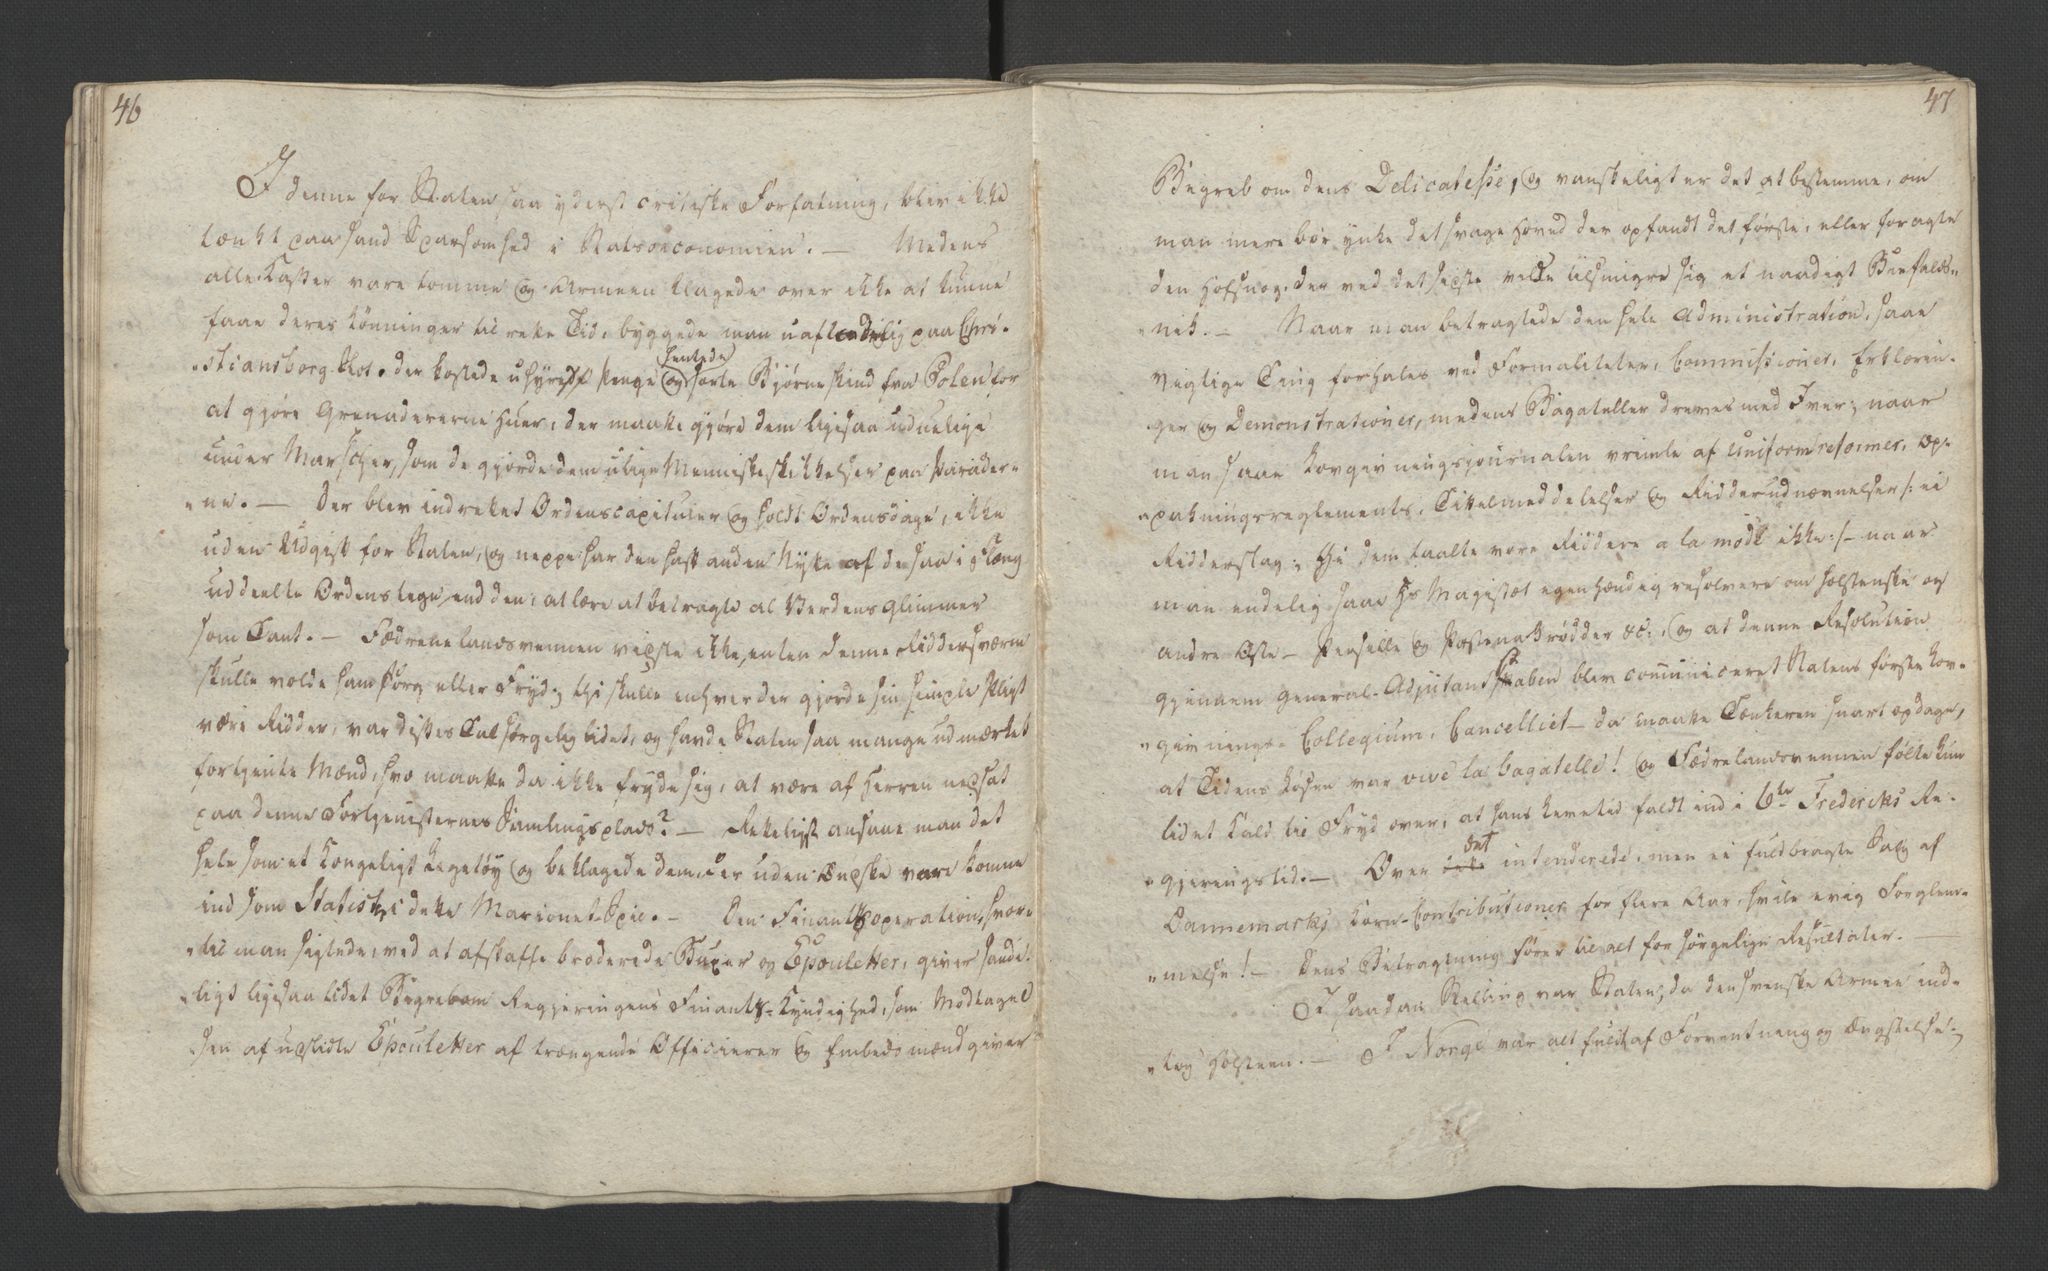 46
I denne for Staten saa yderst critiske Forfatning, blev ikke
tænkt paa sand Sparsomhed i Statsoeconomien. — Medens
alle Casser vare tomme og Armeen klagede over ikke at kunne
faae deres Lønninger til rette Tid, byggede man uafladelig paa Chri-
stiansborg Slot, der kostede uhyre Penge og hentede sorte Bjørneskind fra Polen for
at gjøre Grenadererne Huer, der maatte gjøre dem ligesaa uduelige
under Marscher, som de gjorde dem ulige Menneskeskikkelser paa Parader-
ne. — Der blev indrettet Ordenscapitler og holdt Ordensdage, ikke
uden Udgift for Staten, og neppe har den havt anden Nytte af de saa i Flæng
uddeelte Ordenstegn end den: at lære at betragte al Verdens Glimmer
som Tant. — Fædrenelandsvennen vidste ikke, enten denne Riddersværm
skulle volde ham Sorg eller Fryd; thi skulle enhver der gjorde sin simple Pligt
være Ridder, var disses Tal sørgelig lidet, og havde Staten saa mange udmærket
fortjente Mænd, hvo maatte da ikke fryde sig, at være af Herren nedsat
paa denne Fortjenesternes Samlingsplads? — Rettelig ansaae man det
hele som et Kongeligt Legetøy og beklagede dem, der uden Ønske vare komne
ind som Statister i dette Marionet-Spil. — Den Finantsoperation, hvor-
til man sigtede, ved at afskaffe broderede Buxer og Epouletter, giver sandt
ligt ligesaa lidet Begreb om Regjeringens Finants-Kyndighed, som Modtagel
sen af udslidte Epouletter af trængende Officierer og Embedsmænd giver
47
Begreb om dens Delicatesse, og vanskeligt er det at bestemme, om
man mere bør ynke det svage Hoved der opfandt det første, eller foragte
den Hofsnog, der ved det sidste vilde tilsnige sig et naadigt Biefalds-
nik. — Naar man betragtede den hele Administration, saae
vigtige Ting forhales ved Formaliteter, Commissioner, Erklærin-
ger og Demonstrationer, medens Bagateller dreves med Iver; naar
man saae Lovgivningsjournalen vrimle af Uniformreformer, Op-
pakningsreglements, Titelmeddelelser og Ridderudnævnelser /: ei
Ridderslag, thi dem taalte vore Riddere a la mode ikke :/ — naar
man endelig saae Hs Majestæt egenhændig resolvere om holstenske og
andre Oste — Persille og Pastenakrødder &c:, og at denne Resolution
gjennem General-Adjutantskaben blev communiceret Statens første Lov-
givnings-Collegium, Cancelliet — da maatte Tænkeren snart opdage,
at Tidens Løsen var vive la bagatelle! og Fædrelandsvennen følte kun
lidet Kald til Fryd over, at hans Levetid faldt ind i 6te Fredericks Re-
gjeringstid. — Over det intenderede, men ei fuldbragte Salg af
Dannemarks Korn-Contributioner for flere Aar, hvile evig Forglem-
melse! — Dens Betragtning fører til alt for sørgelige Resultater. —
I saadan Stilling var Staten, da den svenske Armee ind-
tog Holsteen. — I Norge var alt fuldt af Forventning og Ængstelse;